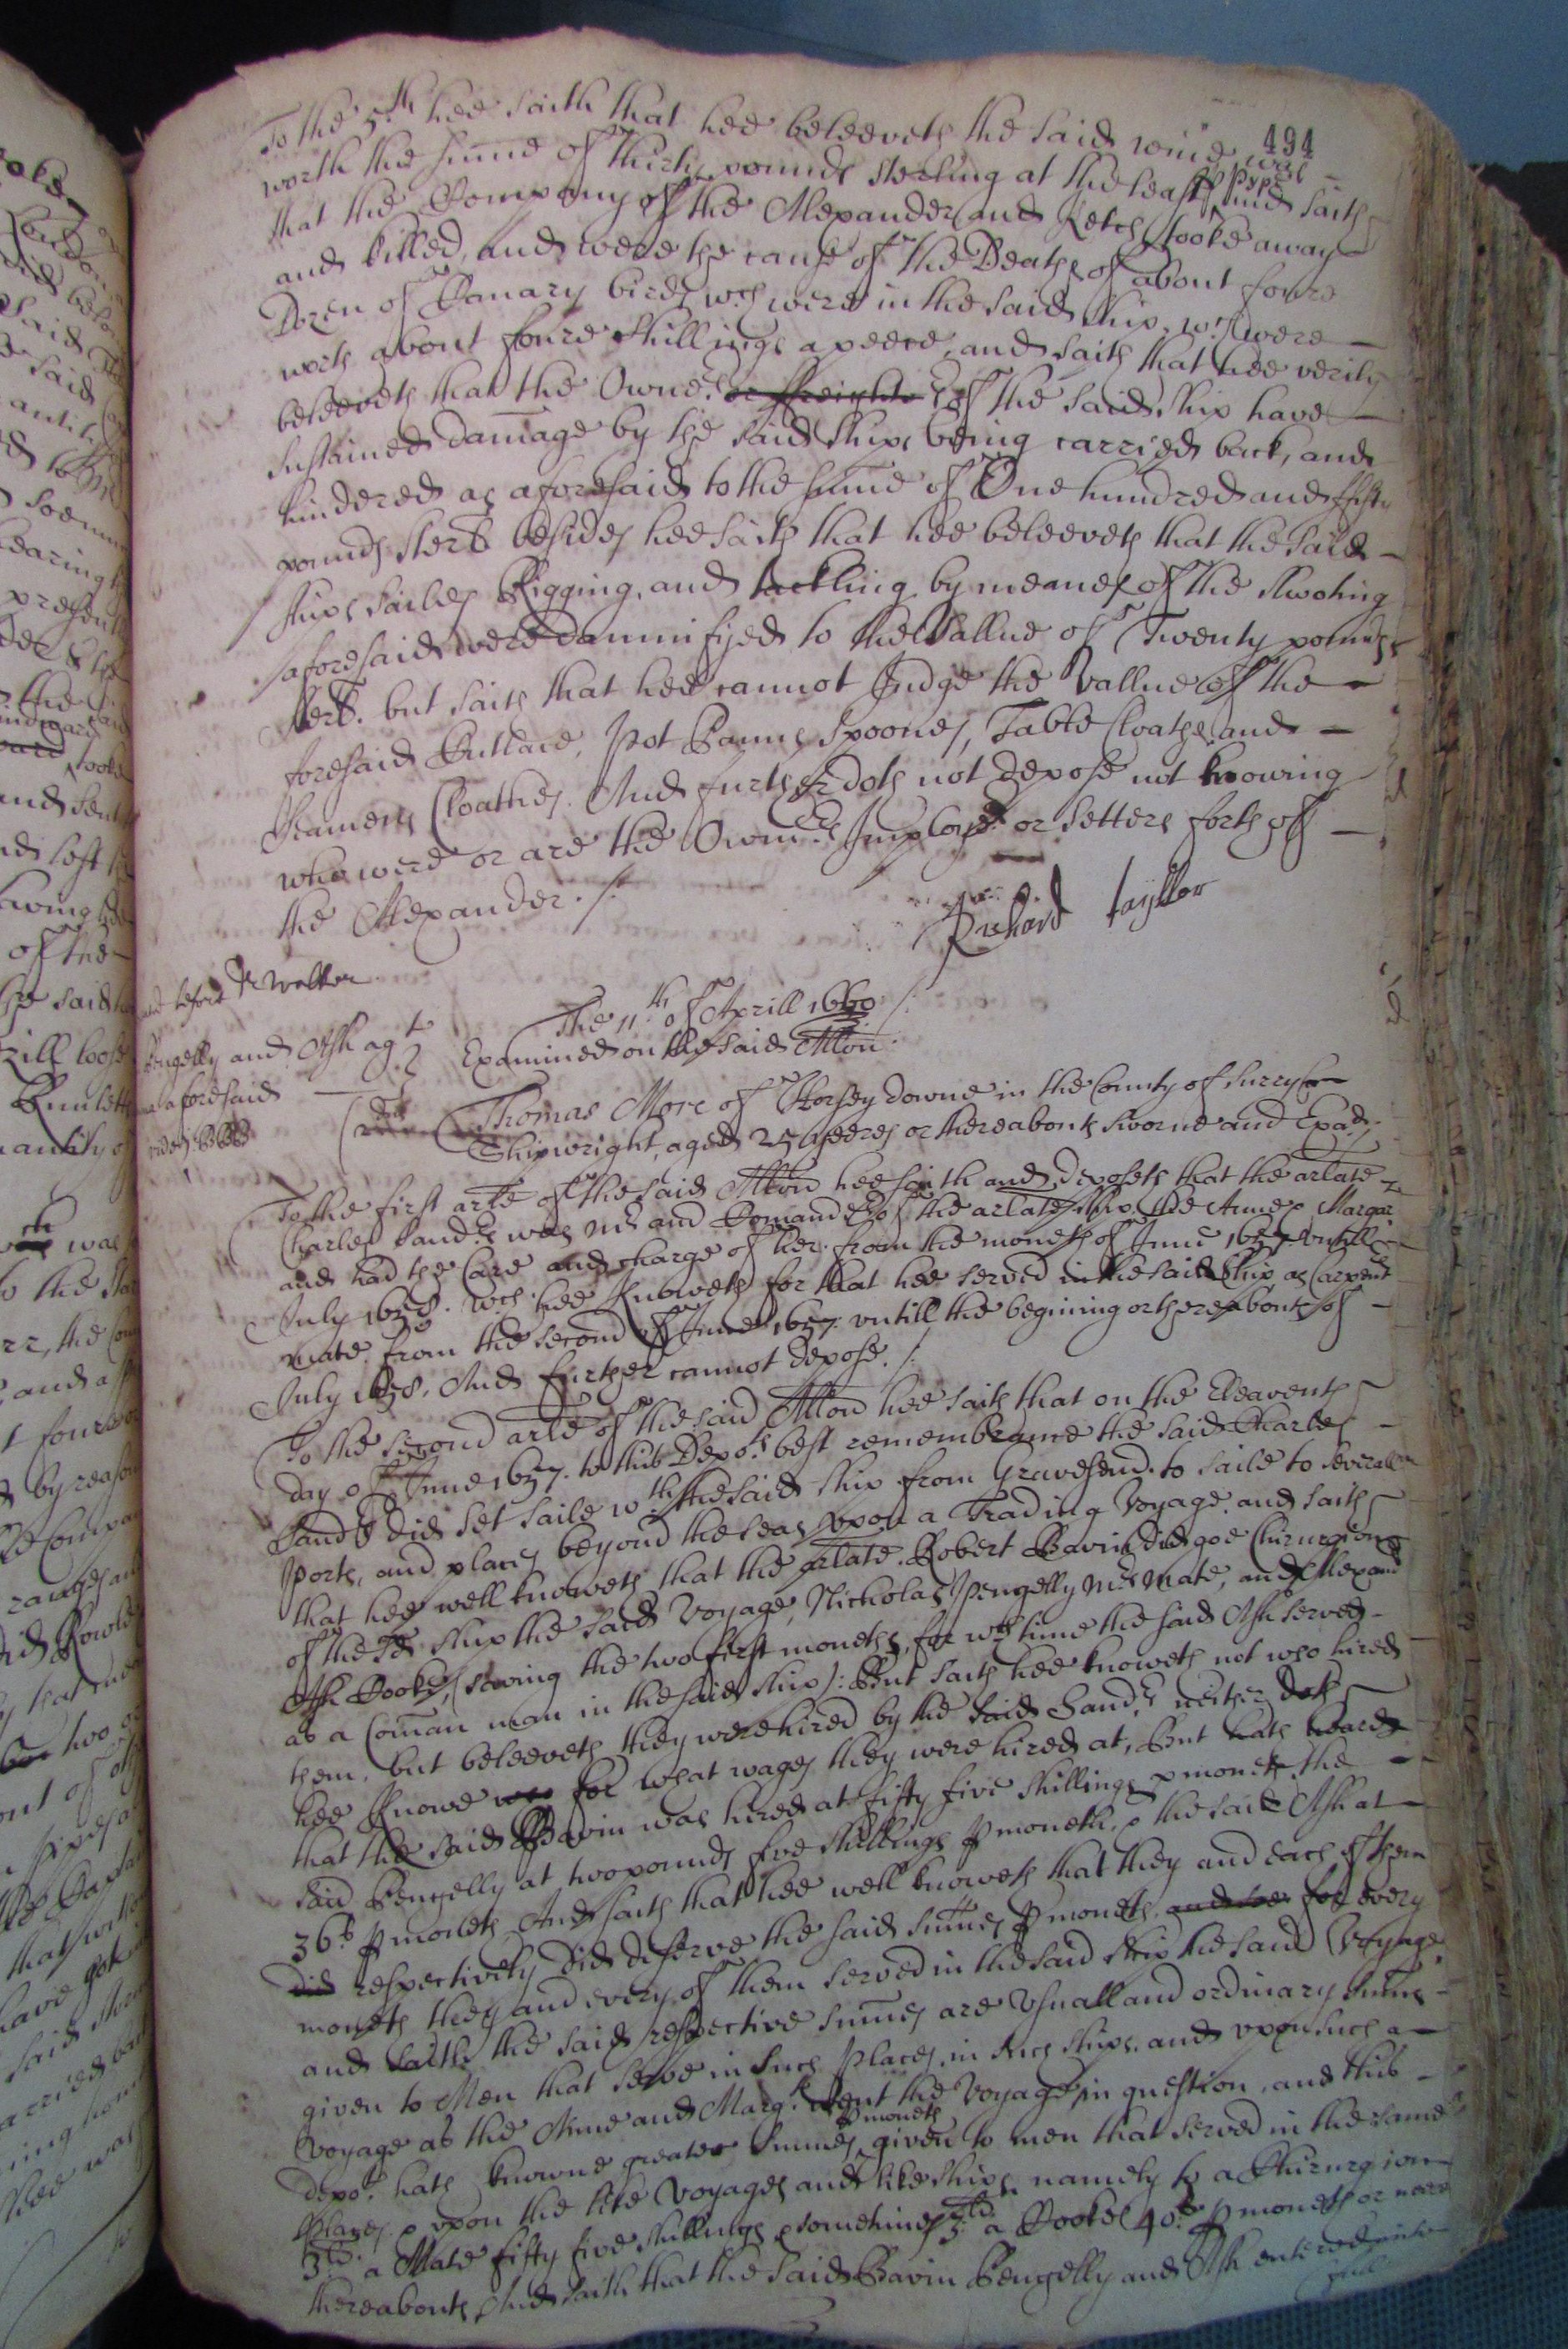 494
To the 5.th hee saith that hee beleeveth the said wine was
worth the sume of thirty pounds sterling at the least p pype
and saith
that the Company of the Alexander and Ketch tooke away
and killed, and were the cause of the Death of about foure
Dozen of Canary birds wch were in the said ship, wch were
worth about foure shillings a peece, and saith that hee verily
beleeveth that the Owners or freighters of the said ship have
sustained damage by the said ships being carried back, and
hindered as aforesaid to the sume of One hundred and fifty
pounds sterl besides hee saith that hee beleeveth that the said
ships sailes Rigging, and tackling by meanes of the shooting
aforesaid were damnifyed to the Vallue of Twenty pounds
sterl. but saith that hee cannot Judge the Vallue of the
foresaid Cutlace, Pot Canns Spoones, Table Cloathes and
Seamens Cloathes. And further doth not depose not knowing
who were or are the Owners Imployers or setters forth of
the Alexander ./.
Richard Tayllor
before Dr Walker
Pengelly and Ash agt
aforesaid
The 11th of Aprill 1660 ./.
Examined on the said Allon
Thomas More of Horsey downe in the County of Surry
Shipwright, aged 25 yeeres or thereabouts sworne and Exad.
To the first arle of the said Allon hee saith and deposeth that the arlate
Charles Sanders was Mr and Comander of the arlate ship the Anne & Margar
and had the Care and charge of her from the moneth of June 1657 untill
July 1658. wch hee knoweth for that hee served in the said ship as Carpenters
mate from the second of June 1657 untill the begining or thereabouts of
July 1658. And further cannot depose ./.
To the second arle of the said Allon hee saith that on the Eleaventh
day of June 1657. to this Depots best remembrance the said Charles
Sanders did set saile wth the said ship from Gravesend to saile to severall
Ports, and places beyond the seas upon a Trading Voyage and saith
that hee well knoweth that the arlate Robert Bavin did goe Chirurgion
of the sd ship the said Voyage, Nicholas Pengelly Mrs Mate, and Alexand
Ash Cooke, (saving the two first moneths, for wch time the said Ash served
as a Coman man in the said ship): But saith hee knoweth not who hired
them, but beleeveth they were hired by the said Sanders neither doth
hee knowe for what wages they were hired at, But hath heard
that the said Bavin was hired at fifty five shillings p moneth the
said Pengelly at two pounds five shillings p moneth, & the said Ash at
36s p moneth And saith that hee well knoweth that they and each of them
did respectively did deserve the said sumes p moneth for every
moneth they and every of them served in the said ship the said Voyage,
and saith the said respective sumes are Usuall and ordinary sumes
given to Men that serve in such places, in such ships, and upon such a
voyage as the Anne and Margt went the Voyage in question, and this
depot hath knowne greater sumes p moneth given to men that served in the same
places & upon the like Voyages and like ships, namely to a Chirurgion
3li. a Mate fifty five shillings & sometimes 3li a Cooke 40s p moneth or neare
thereabouts, And saith that the said Bavin Pengelly and Ash entered into